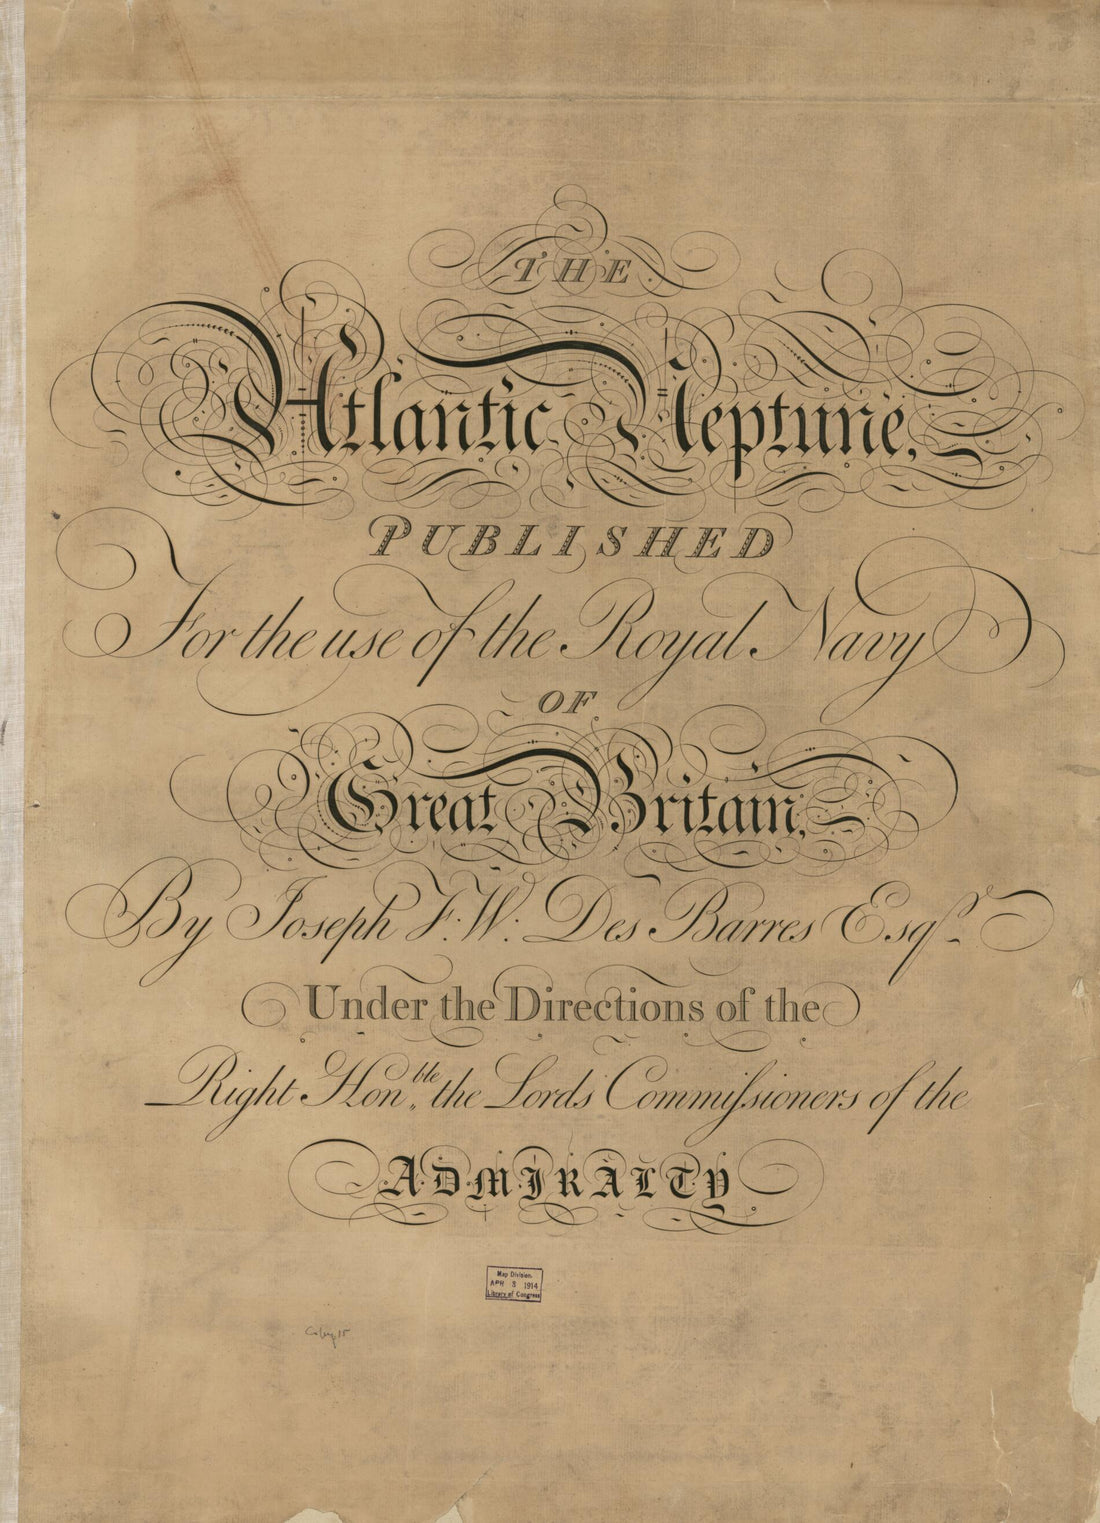 THE
Atlantic Neptune,
PUBLISHED
For the use of the Royal Navy
OF
Great Britain,
By Joseph F. W. Des Barres Esqr.
Under the Directions of the
Right Honble the Lords Commiſsioners of the
ADMIRALTY
Map Division.
APR 3 1914
Library of Congress